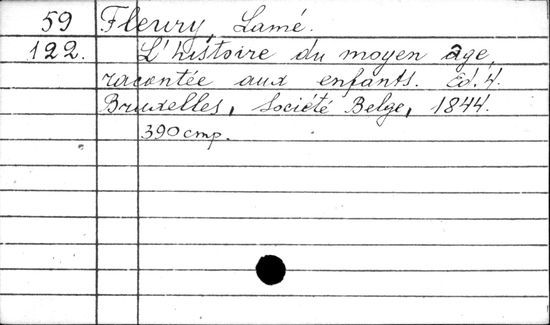 59 Fleury, Lamé.
122. L'histoire du moyen âge,
racontée aux enfants. Éd. 4.
Bruxelles, Société Belge, 1844.
390 стр.